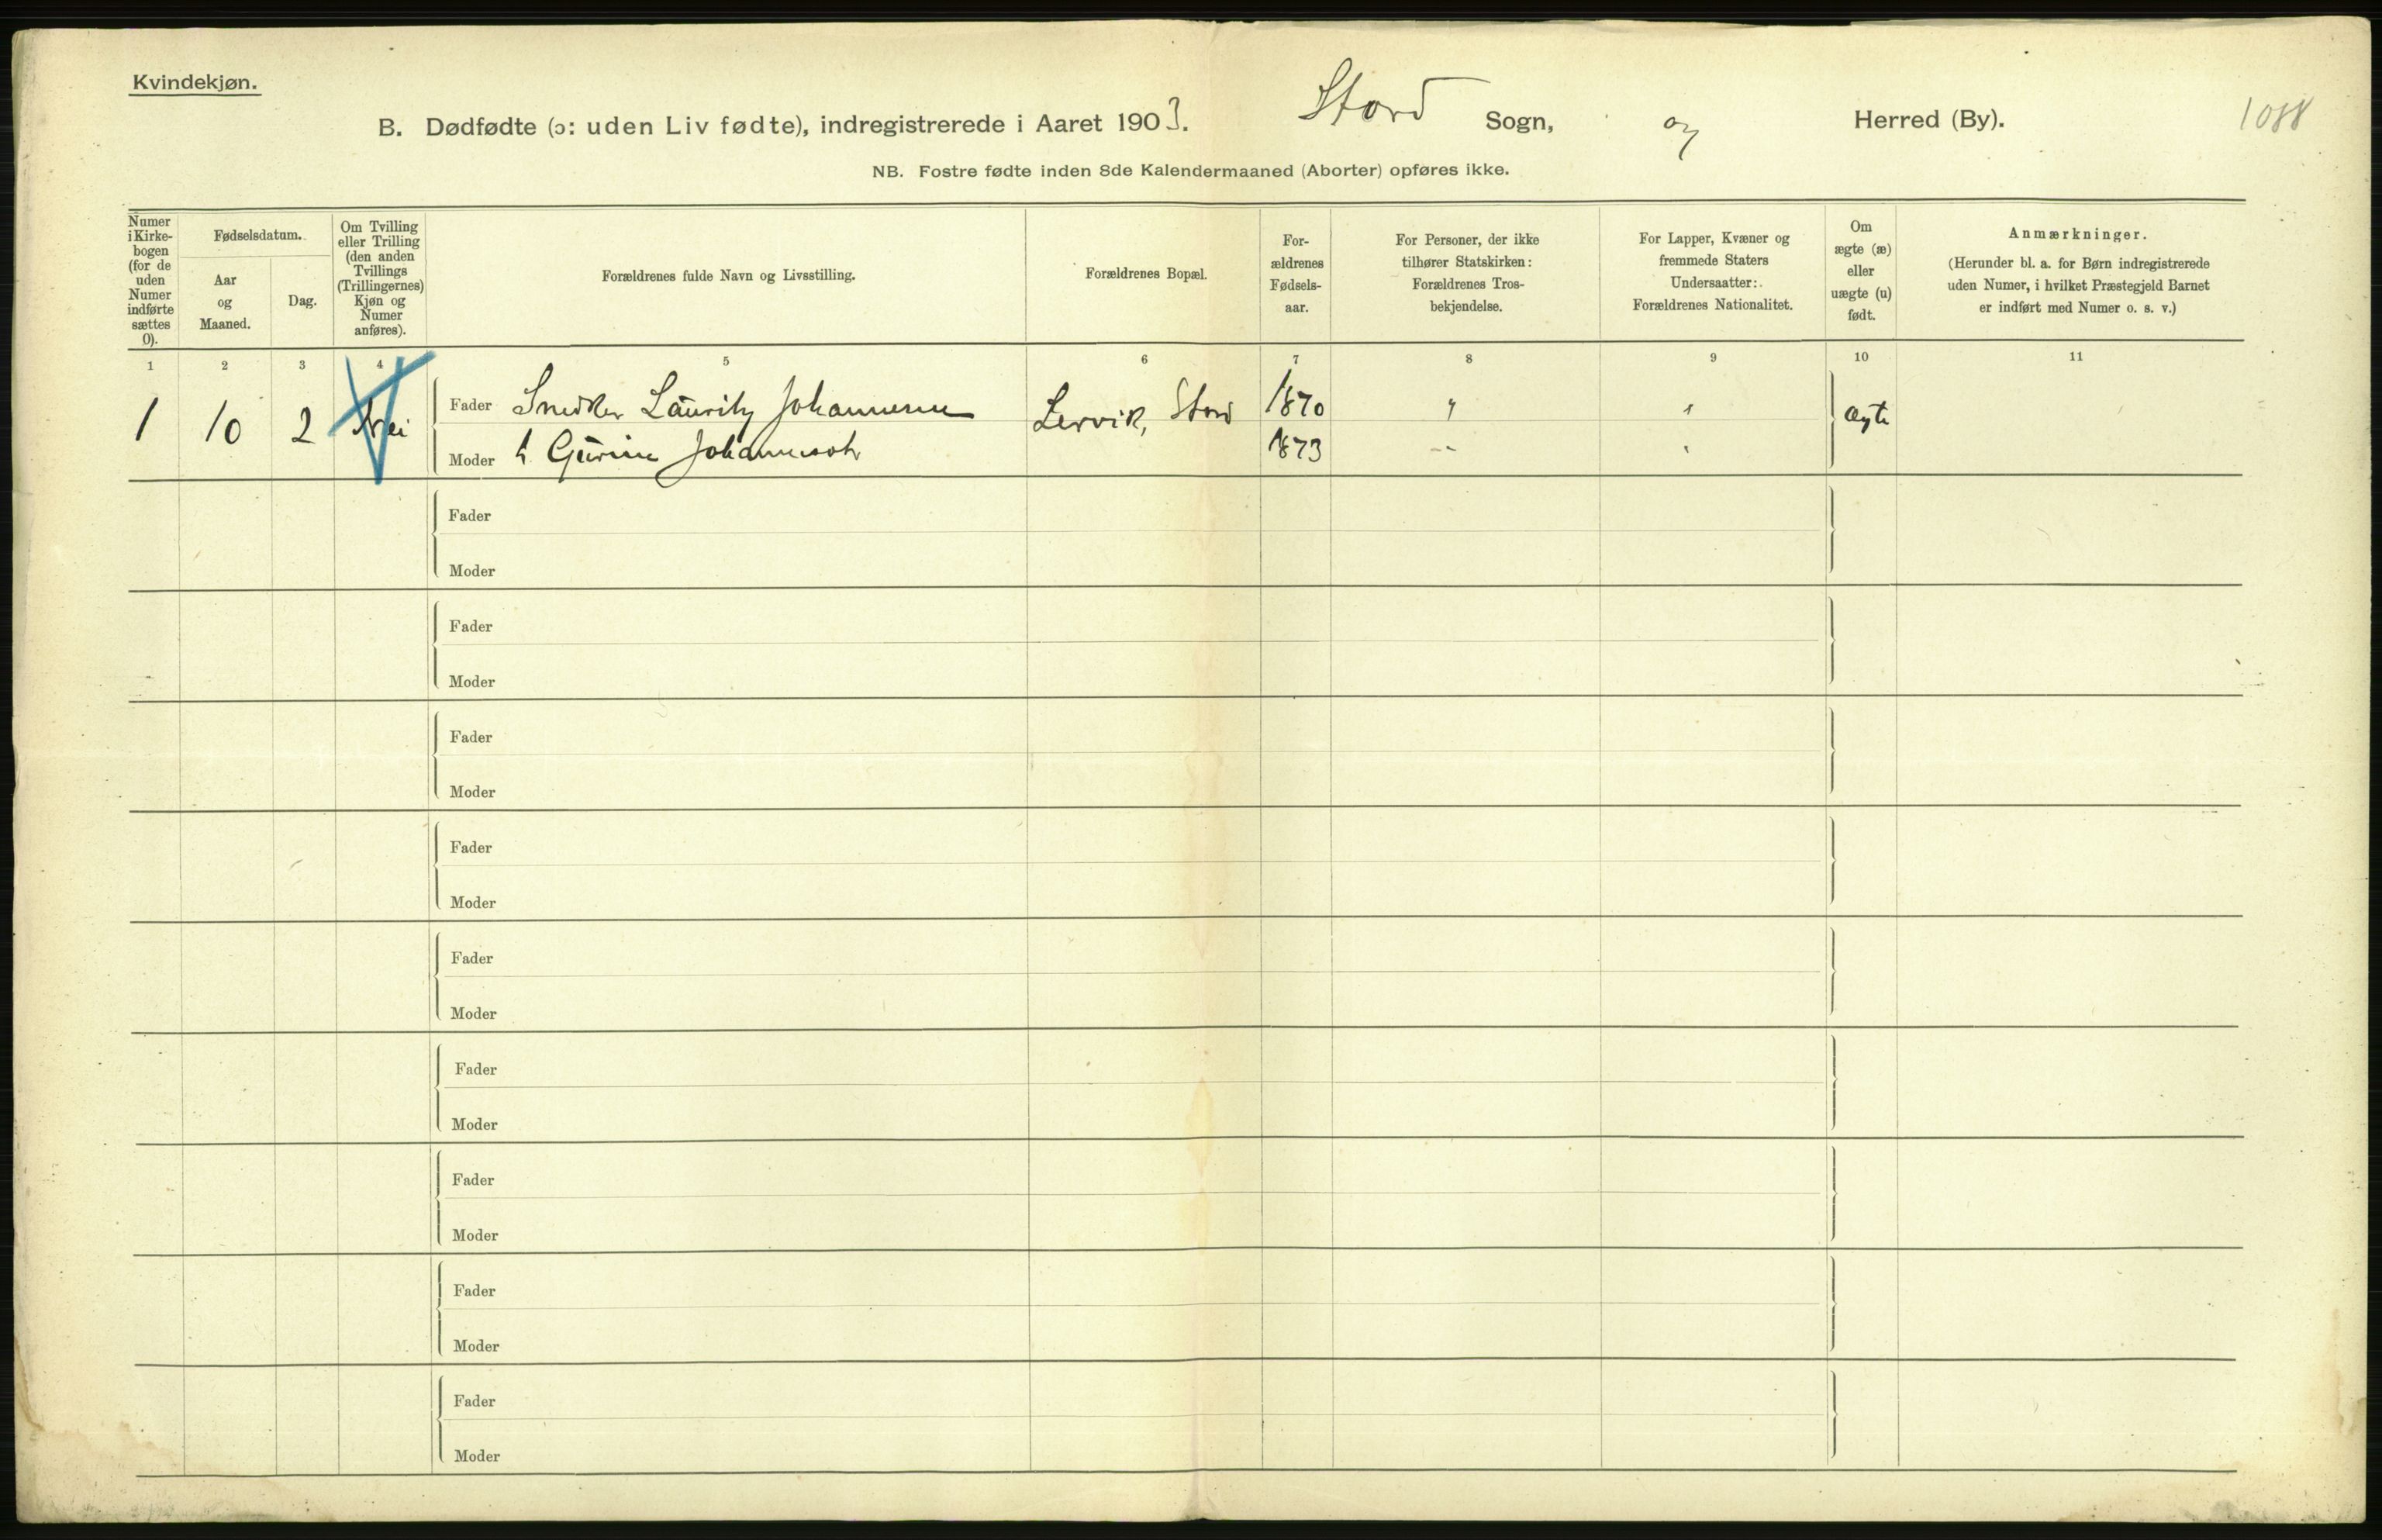 Kvindekjøn.
B. Dødfødte (ɔ: uden Liv fødte), indregistrerede i Aaret 1903. Stord Sogn, og Herred (By).
NB. Fostre fødte inden 8de Kalendermaaned (Aborter) opføres ikke.
Numer i Kirke-bogen (for de uden Numer indførte sættes 0).
Fødselsdatum.
Aar og Maaned.
Dag.
Om Tvilling eller Trilling (den anden Tvillings (Trillingernes) Kjøn og Numer anføres).
Forældrenes fulde Navn og Livsstilling.
Forældrenes Bopæl.
For-ældrenes Fødsels-aar.
For Personer, der ikke tilhører Statskirken: Forældrenes Tros-bekjendelse.
For Lapper, Kvæner og fremmede Staters Undersaatter: Forældrenes Nationalitet.
Om ægte (æ) eller uægte (u) født.
Anmærkninger.
(Herunder bl. a. for Børn indregistrerede uden Numer, i hvilket Præstegjeld Barnet er indført med Numer o. s. v.)
1 2 3 4 5 6 7 8 9 10 11
1 10 2 Nei Fader Snedker Lauritz Johannesen Lervik, Stord 1870 " " Ægte
Moder h. Gurine Johannesdtr 1873 " "
Fader
Moder
Fader
Moder
Fader
Moder
Fader
Moder
Fader
Moder
Fader
Moder
Fader
Moder
Fader
Moder
Fader
Moder